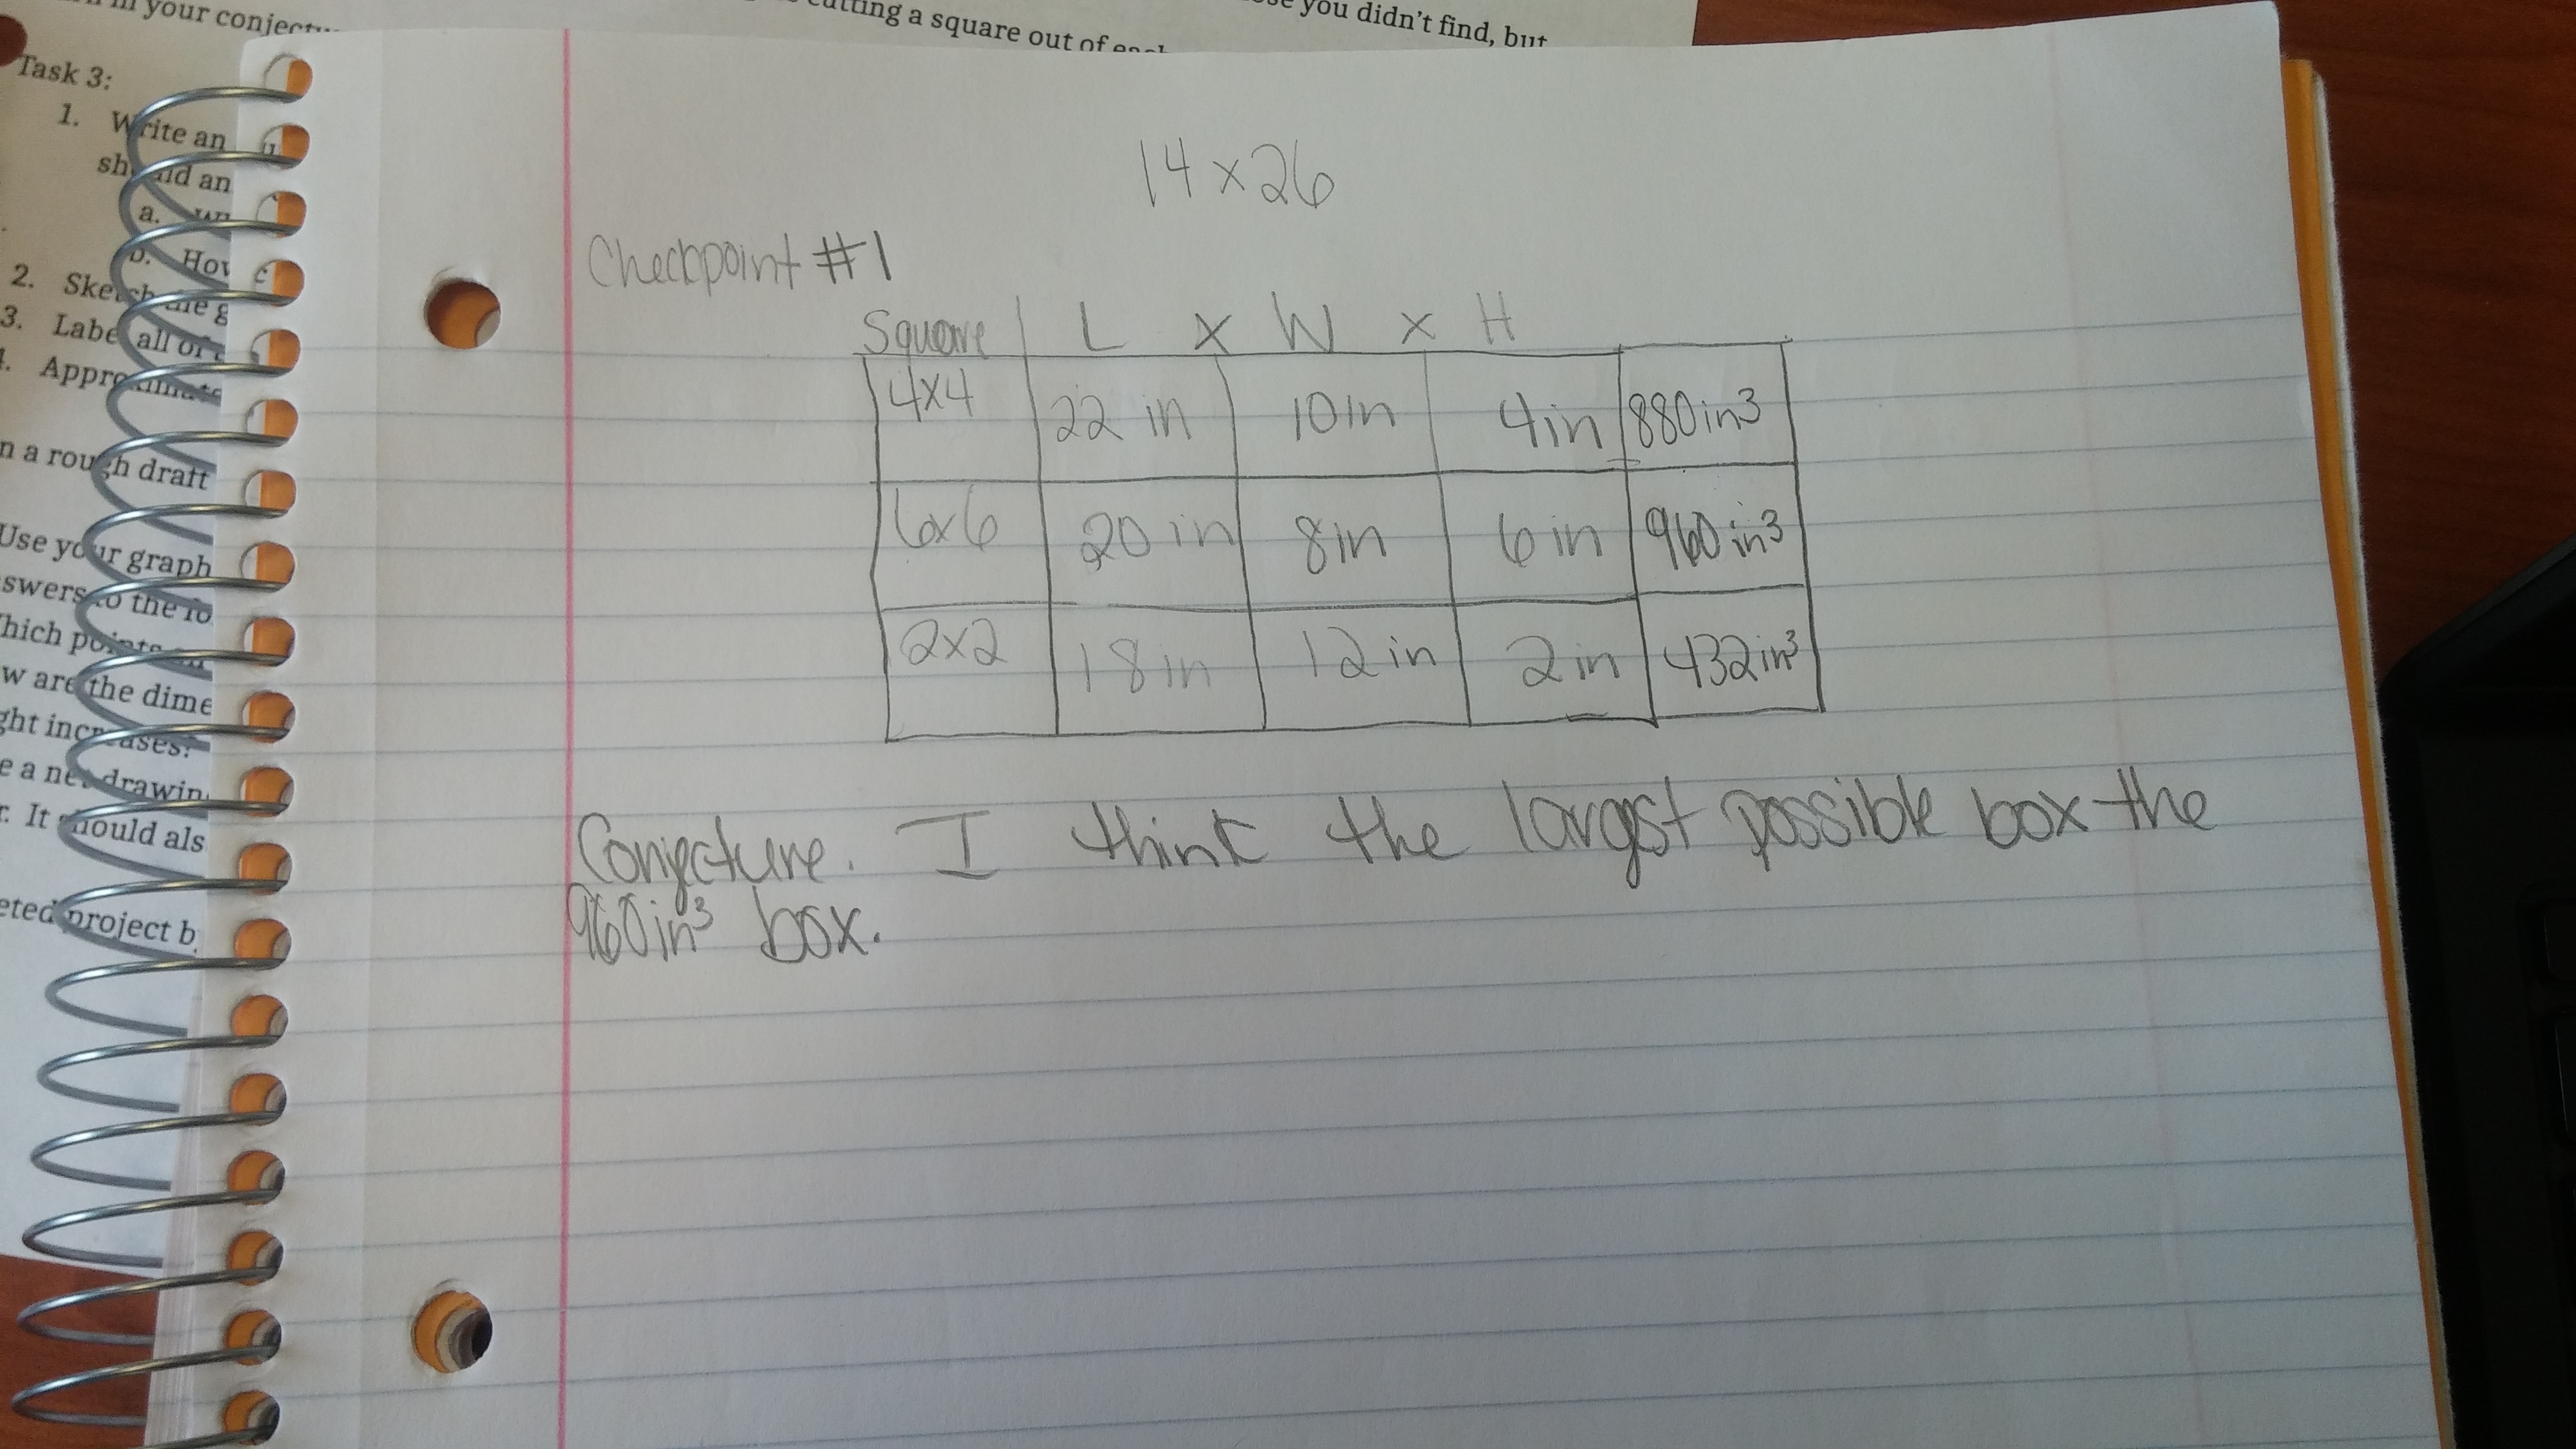 in your conjectu
cutting a square out of each
you didn't find, but
Task 3:
1. Write an
should an
a.
b. How
2. Sketch the g
3. Label all of
Approximate
n a rough draft
Use your graph
swers to the fo
hich points
w are the dime
ght increases?
e a net drawin
r. It should als
eted project b
14 x 26
Checkpoint #1
Square L x W x H
4x4 22 in 10in 4in 880in³
6x6 20 in 8in 6 in 960 in³
2x2 18in 12 in 2 in 432in³
Conjecture. I think the largst possible box the
960in³ box.